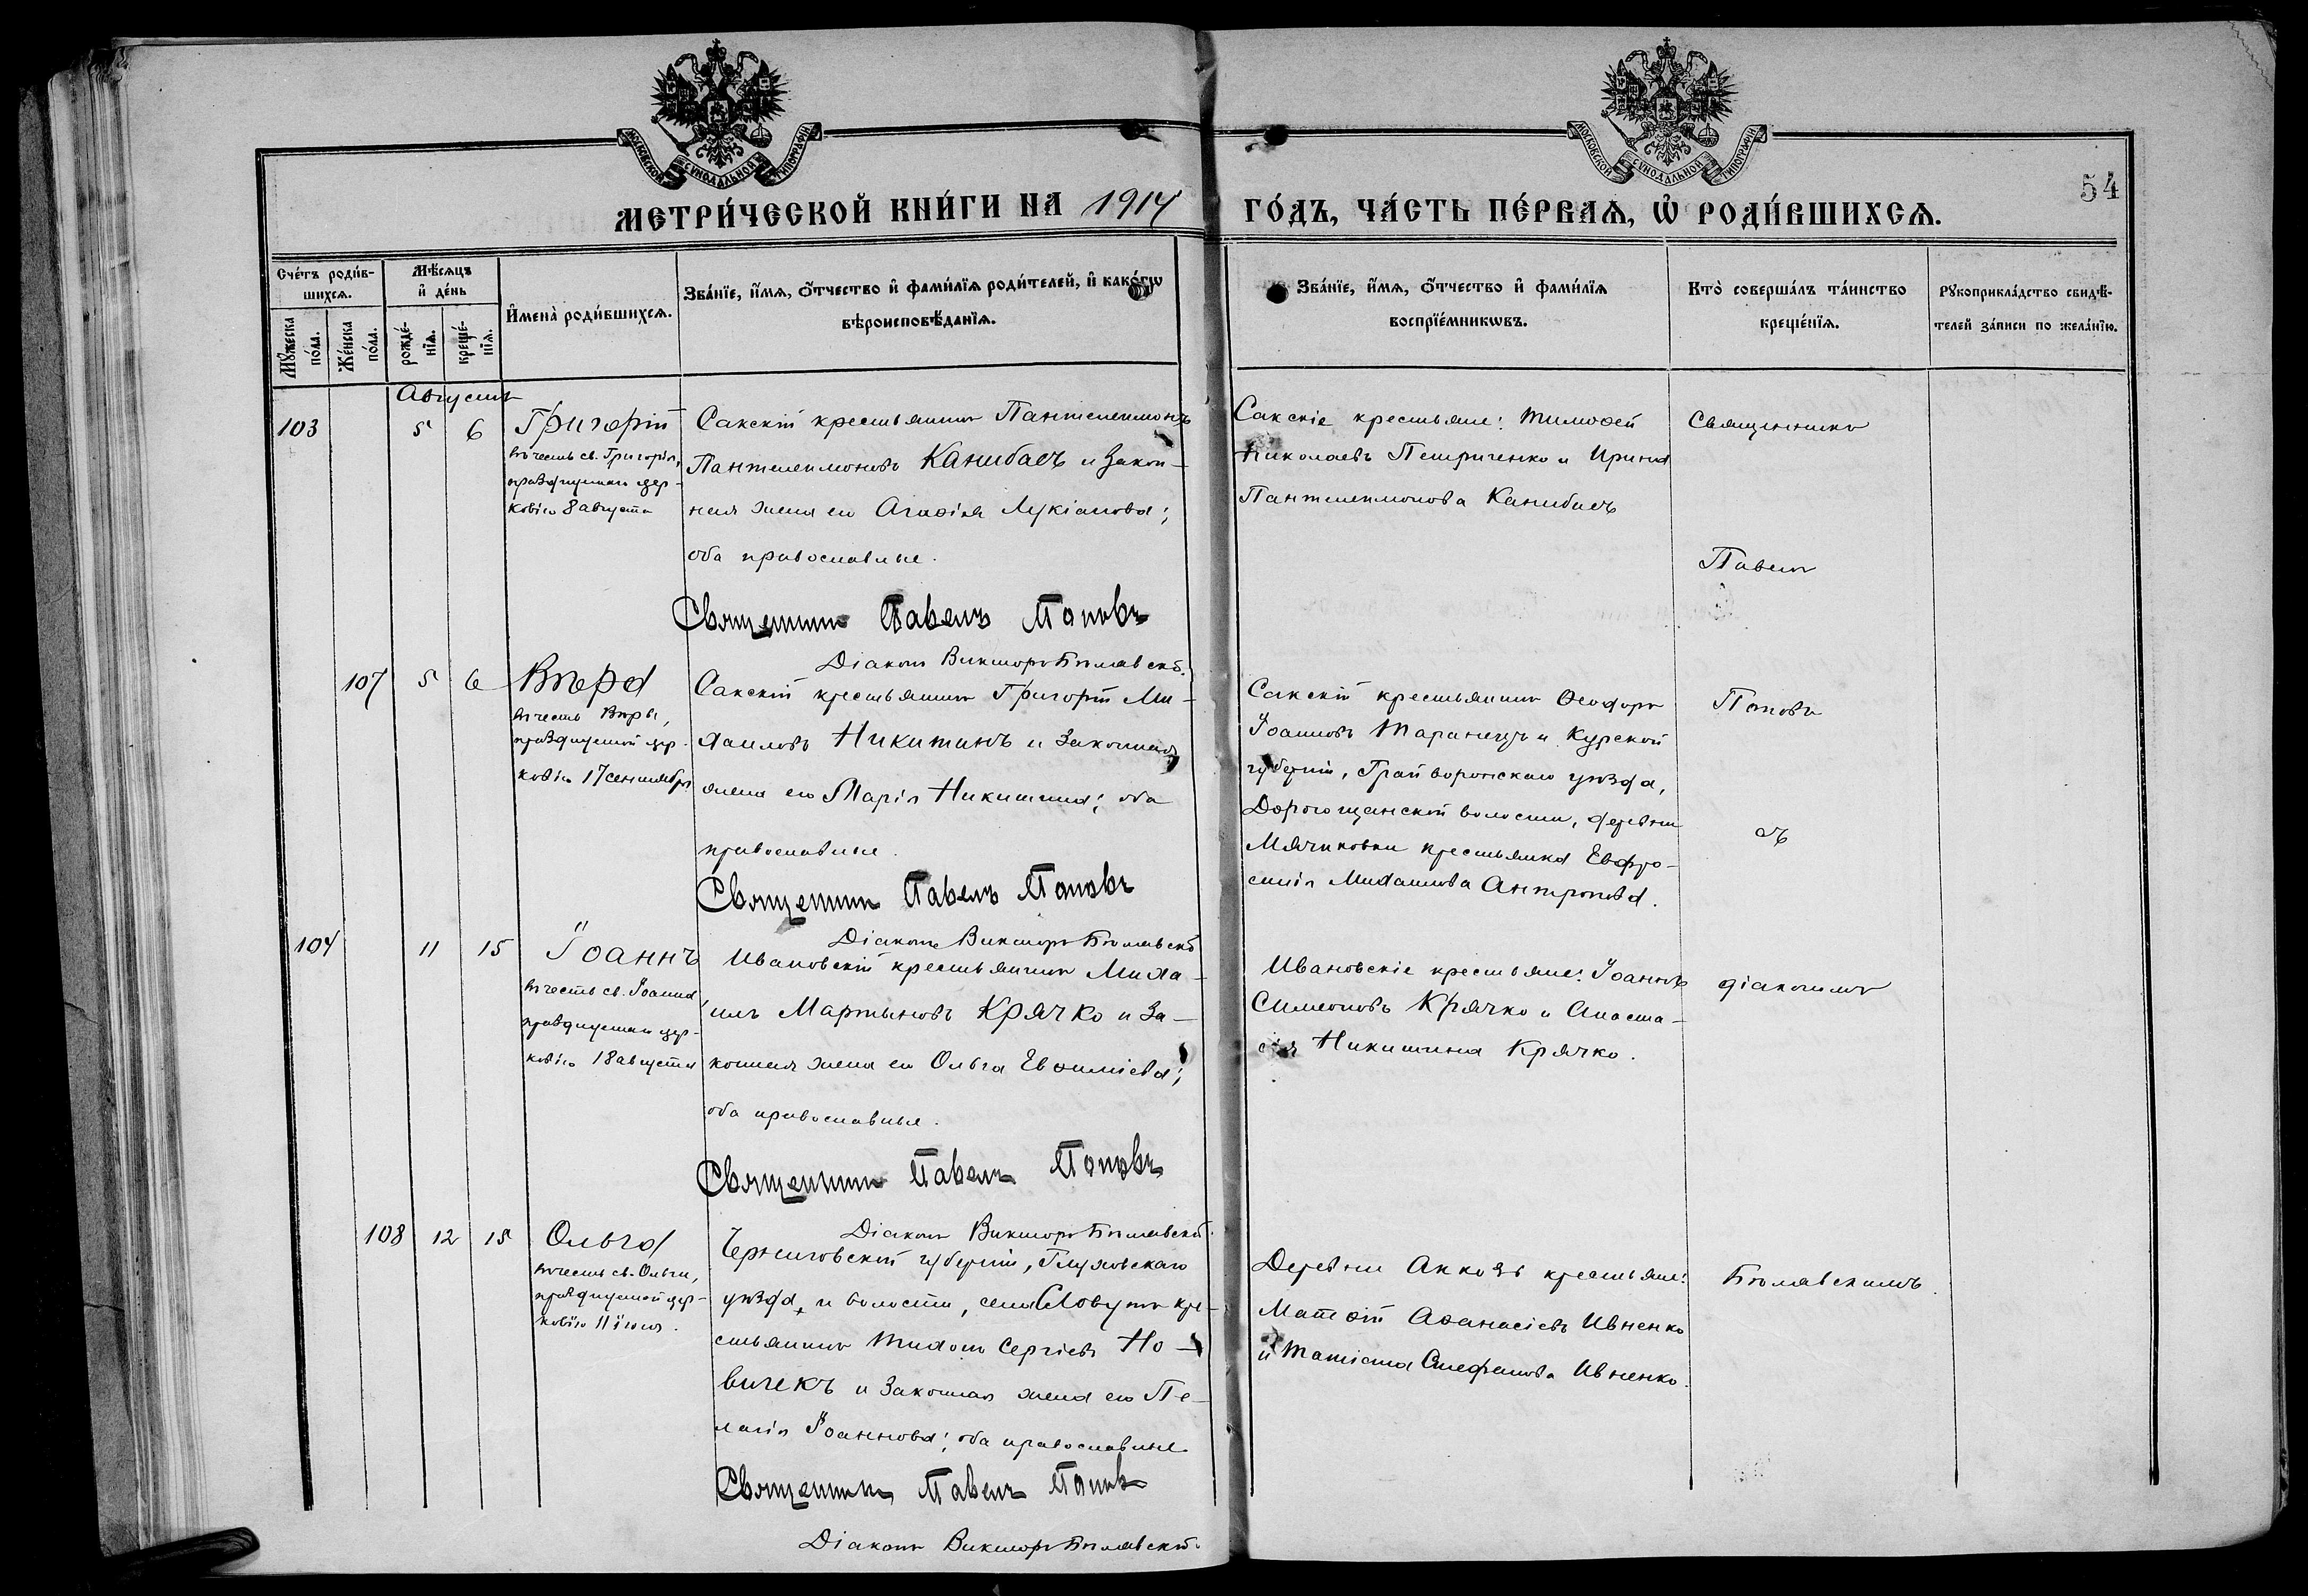 МОСКОВСКОЙ СѴНОДАЛЬНОЙ ТИПОГРАФІИ
МОСКОВСКОЙ СѴНОДАЛЬНОЙ ТИПОГРАФІИ
54
МЕТРИ́ЧЕСКОЙ КНИ́ГИ НА 1914 ГО́ДЪ, ЧА́СТЬ ПЕ́РВАѦ, Ѡ҆ РОДИ́ВШИХСѦ.
Сче́тъ роди́в-
шихсѧ.
Мꙋ́жеска по́ла.
Же́нска по́ла.
Мѣ́сѧцъ
и҆ де́нь
рожде́-
нїѧ.
креще́-
нїѧ.
И҆мена̀ роди́вшихсѧ.
Зва́нїе, и҆́мѧ, ѻ҆́тчество и҆ фами́лїѧ роди́телей, и҆ како́гѡ
вѣроисповѣ́данїѧ.
Зва́нїе, и҆́мѧ, ѻ҆́тчество и҆ фами́лїѧ
воспрїе́мникѡвъ.
Кто̀ соверша́лъ та́инство
креще́нїѧ.
Рꙋкоприкла́дство свидѣ́-
телей за́писи по жела́нїю.
Августъ
103
5
6
Григорій
въ честь св. Григорія,
празднуемаго цер-
ковію 8 августа
Сакскій крестьянинъ Пантелеимонъ
Пантелеимоновъ Канибаеъ и закон-
ная жена его Агаѳія Лукіанова;
оба православные.
Священникъ Павелъ Поповъ
Діаконъ Викторъ Бѣлявскій
Сакскіе крестьяне: Тимоѳей
Николаевъ Петриченко и Ирина
Пантелеимонова Канибаеъ
Священникъ
Павелъ
107
5
6
Вѣра
въ честь Вѣры,
празднуемой цер-
ковію 17 сентября
Сакскій крестьянинъ Григорій Ми-
хаиловъ Никитинъ и законная
жена его Марія Никитина; оба
православные.
Священникъ Павелъ Поповъ
Діаконъ Викторъ Бѣлявскій
Сакскій крестьянинъ Ѳеодоръ
Іоанновъ Таранецъ и Курской
губерніи, Грайворонскаго уѣзда,
Дорогощанской волости, деревни
Мячиковки крестьянка Евфро-
синія Михаилова Антропова.
Поповъ
съ
104
11
15
Іоаннъ
въ честь св. Іоанна,
празднуемаго цер-
ковію 18 августа
Ивановскій крестьянинъ Миха-
илъ Мартыновъ Крячко и за-
конная жена его Ольга Евѳиміева;
оба православные.
Священникъ Павелъ Поповъ
Діаконъ Викторъ Бѣлявскій
Ивановскіе крестьяне: Іоаннъ
Симеоновъ Крячко и Анаста-
сія Никитина Крячко.
діакономъ
108
12
15
Ольга
въ честь св. Ольги,
празднуемой цер-
ковію 11 іюля.
Черниговской губерніи, Глуховскаго
уѣзда, и волости, села Словутъ кре-
стьянинъ Тихонъ Сергіевъ Но-
вичекъ и законная жена его Пе-
лагія Іоаннова; оба православные
Священникъ Павелъ Поповъ
Діаконъ Викторъ Бѣлявскій
Деревни Аккозъ крестьяне:
Матѳій Аѳанасіевъ Ивненко
и Татіана Стефанова Ивненко.
Бѣлявскимъ.